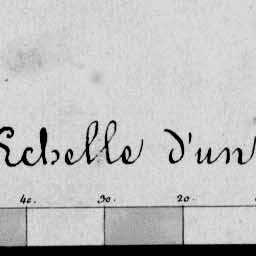 Echelle d'un
40. 30. 20.